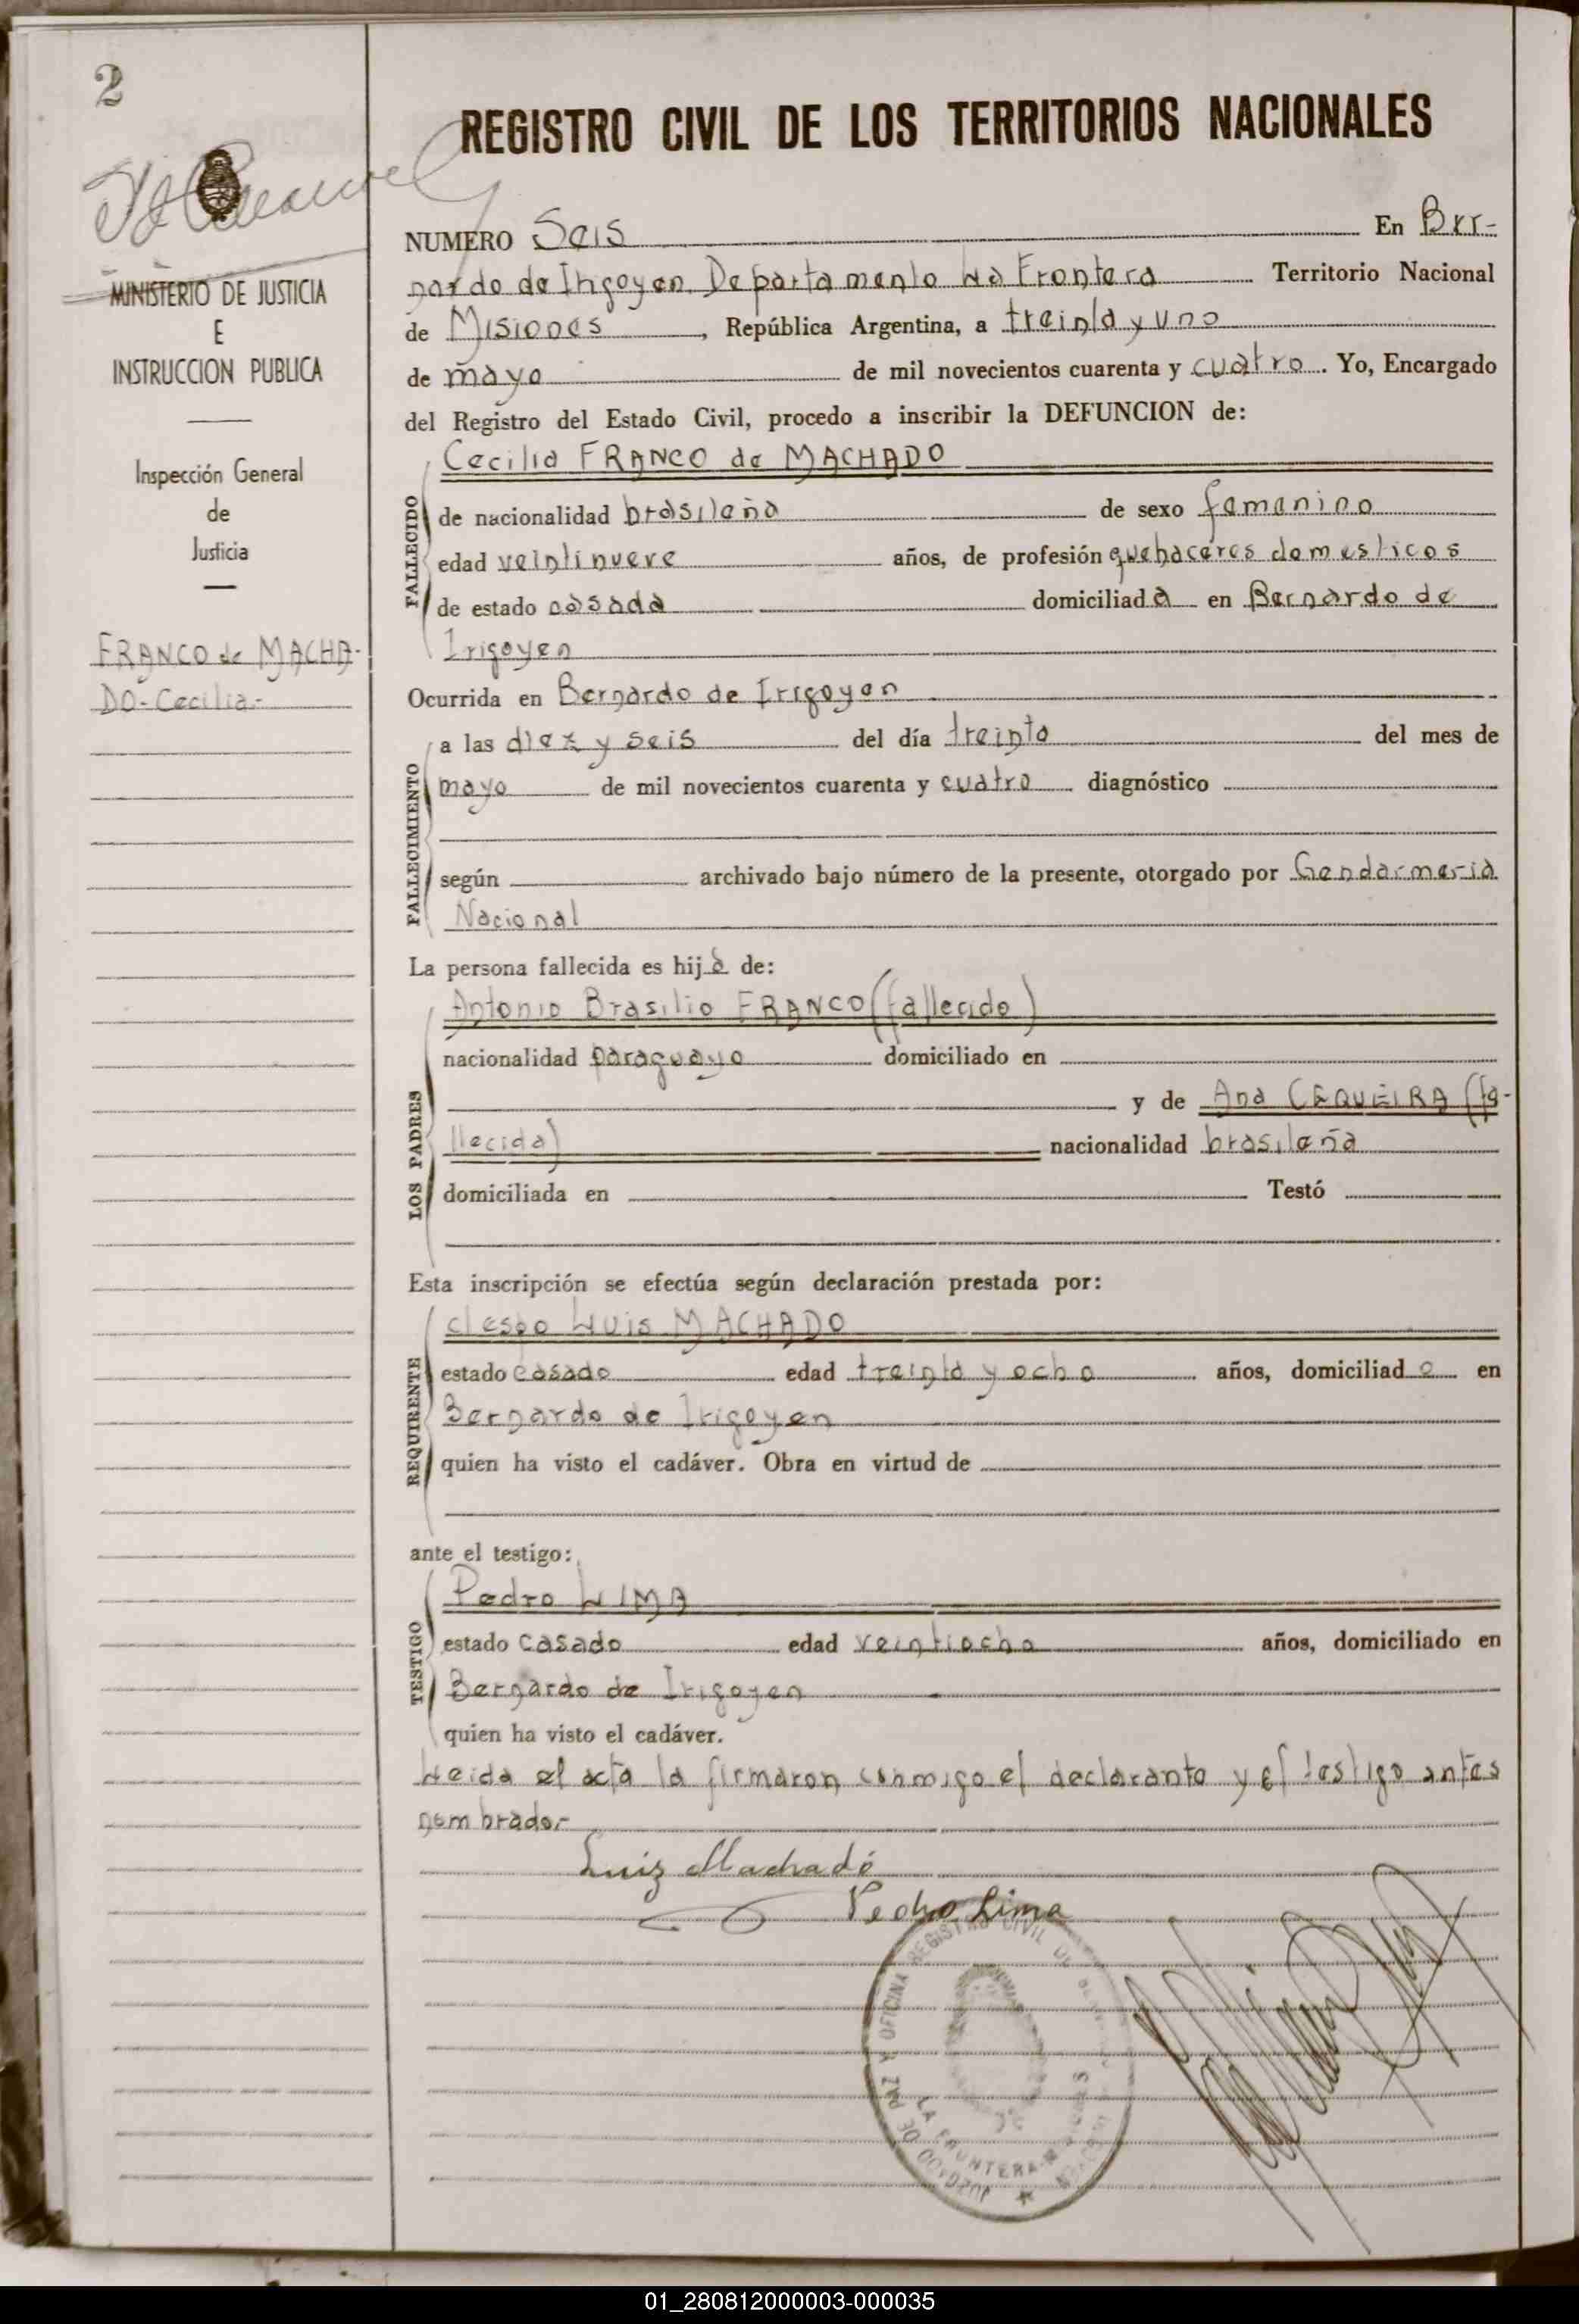 2
REGISTRO CIVIL DE LOS TERRITORIOS NACIONALES
MINISTERIO DE JUSTICIA
E
INSTRUCCION PUBLICA
Inspección General
de
Justicia
FRANCO de MACHA-
DO- Cecilia.-
NUMERO Seis En Ber-
nardo de Irigoyen, Departamento La Frontera Territorio Nacional
de Misiones, República Argentina, a treinta y uno
de mayo de mil novecientos cuarenta y cuatro. Yo, Encargado
del Registro del Estado Civil, procedo a inscribir la DEFUNCION de:
Cecilia FRANCO de MACHADO
FALLECIDO
de nacionalidad brasileña de sexo femenino
edad veintinueve años, de profesión quehaceres domesticos
de estado casada domiciliada en Bernardo de
Irigoyen
Ocurrida en Bernardo de Irigoyen
FALLECIMIENTO
a las diez y seis del día treinta del mes de
mayo de mil novecientos cuarenta y cuatro diagnóstico
según archivado bajo número de la presente, otorgado por Gendarmeria
Nacional
La persona fallecida es hija de:
LOS PADRES
Antonio Brasilio FRANCO (fallecido)
nacionalidad paraguayo domiciliado en
y de Ana CEQUEIRA (fa-
llecida) nacionalidad brasileña
domiciliada en Testó
Esta inscripción se efectúa según declaración prestada por:
REQUIRENTE
Luis MACHADO
estado casado edad treinta y ocho años, domiciliado en
Bernardo de Irigoyen
quien ha visto el cadáver. Obra en virtud de
ante el testigo:
TESTIGO
Pedro LIMA
estado casado edad veintiocho años, domiciliado en
Bernardo de Irigoyen
quien ha visto el cadáver.
Leida el acta la firmaron conmigo el declarante y el testigo antes
nombrado.-
Luiz Machado
Pedro Lima
JUZGADO DE PAZ Y OFICINA REGISTRO CIVIL DE
LA FRONTERA-MISIONES
01_280812000003-000035